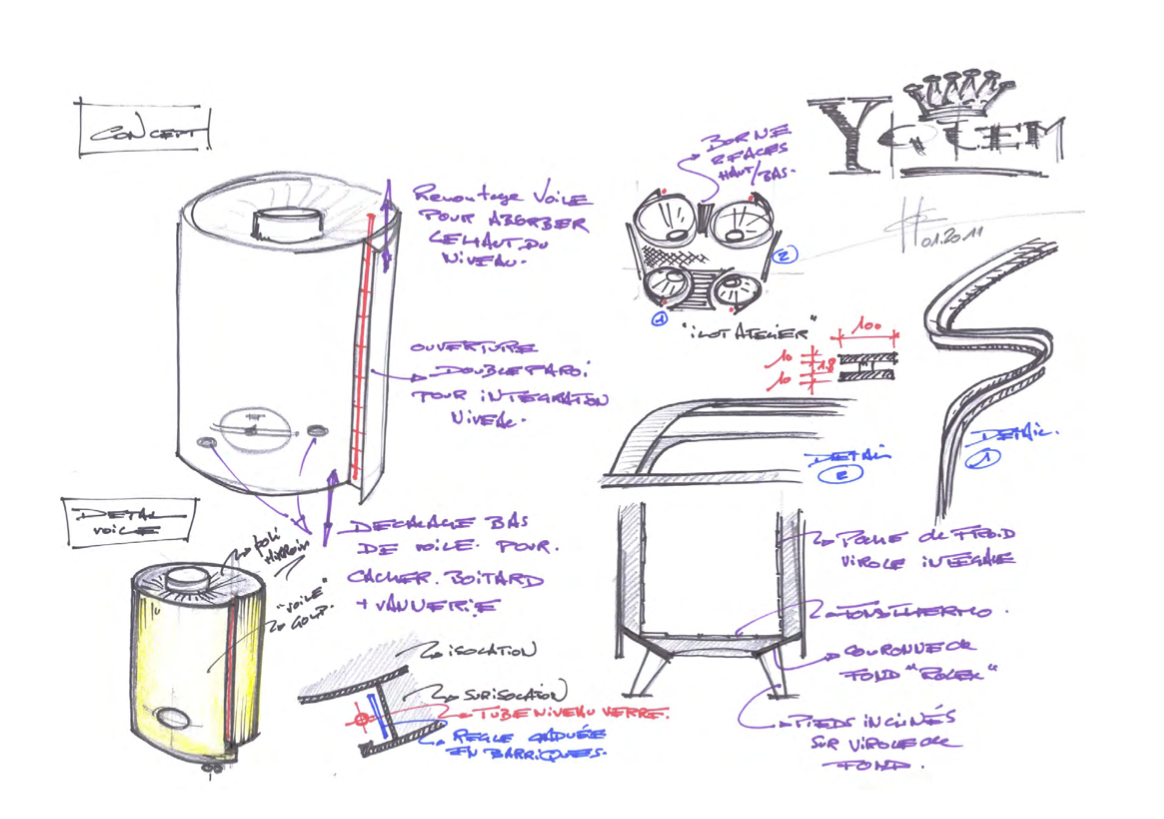 CONCEPT
YQUEM
01.2011
BORNE
2 FACES
HAUT/BAS.
Remontage VOILE
POUR ABSORBER
LE HAUT DU
NIVEAU.
2
1
"ILOT ATELIER"
100
10
18
10
OUVERTURE
DOUBLE PAROI
POUR INTEGRATION
NIVEAU.
DETAIL
2
DETAIL.
1
DETAIL
VOILE
poli
mirroir
"VOILE"
GOLD.
DECALAGE BAS
DE VOILE POUR.
CACHER. BOITARD
+ VANNERIE
POCHE de FROID
VIROLE INTEGRALE
FOND THERMO.
COURONNE de
FOND "ROLEX"
PIEDS INCLINÉS
SUR VIROLE de
FOND.
ISOLATION
SURISOLATION
TUBE NIVEAU VERRE.
REGLE GRADUÉE
EN BARRIQUES.